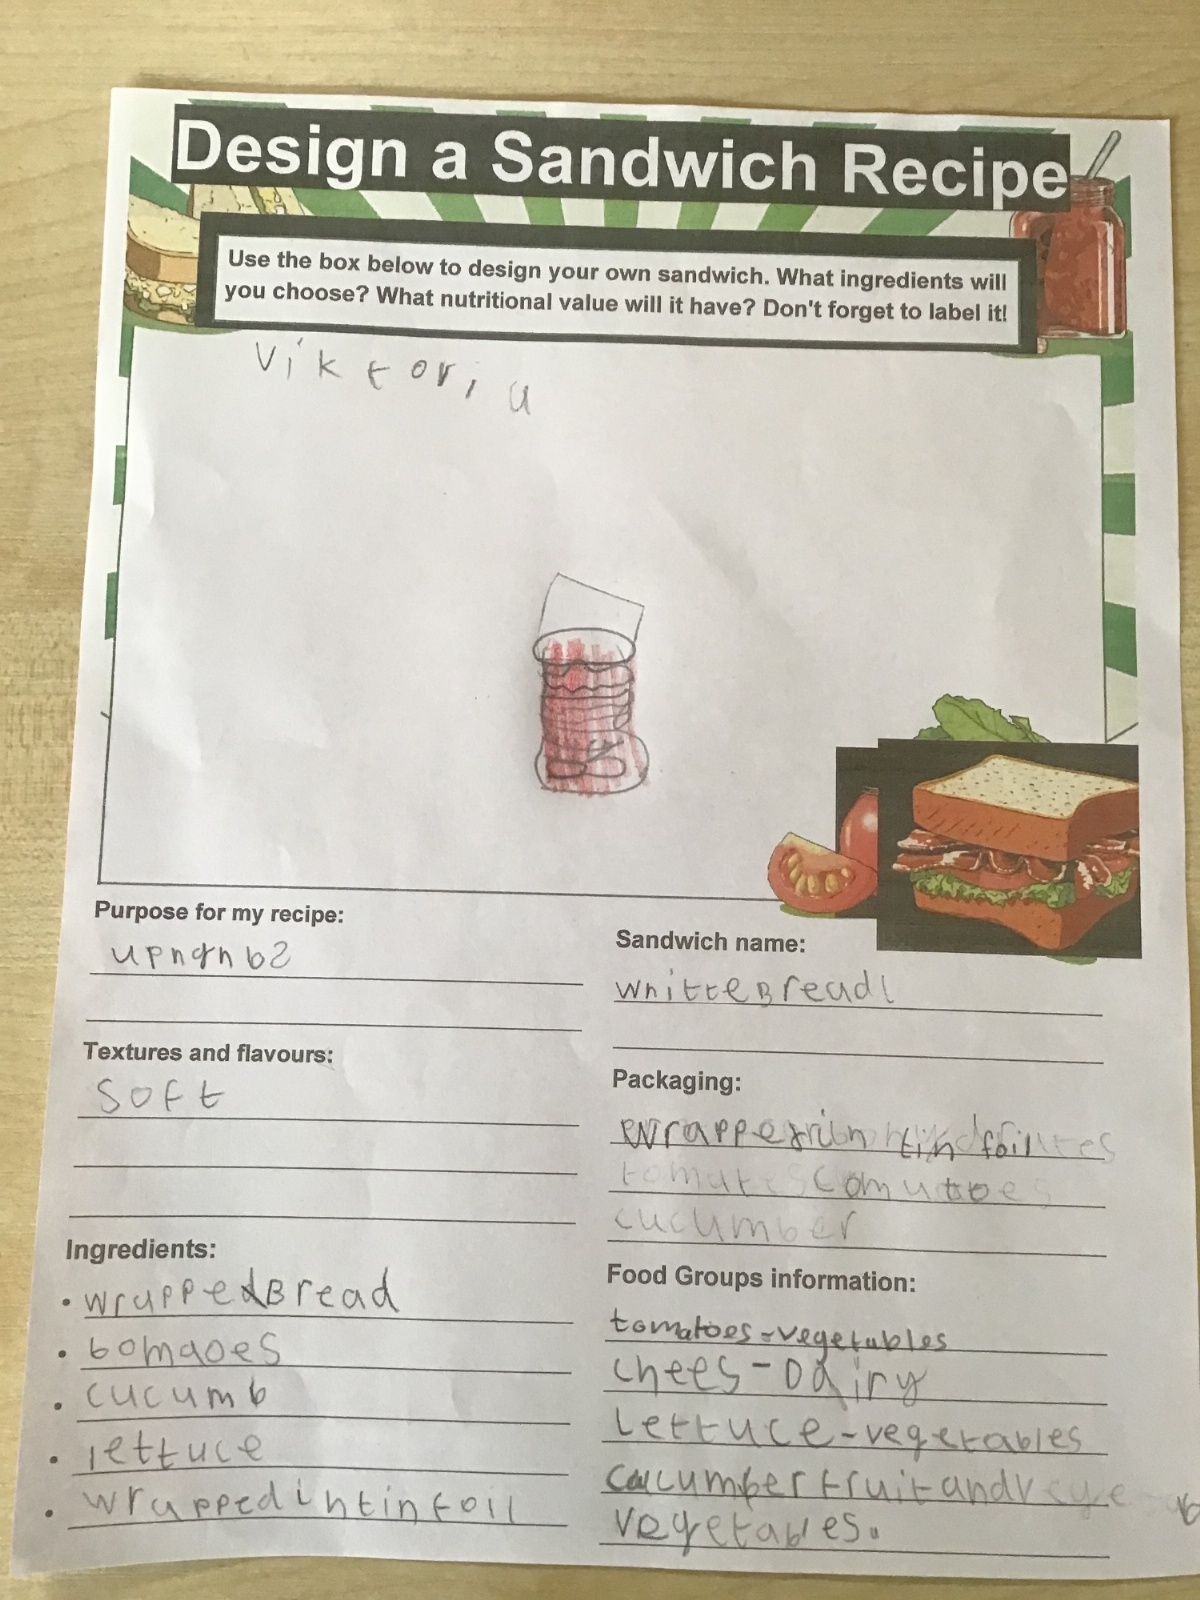 Design a Sandwich Recipe
Use the box below to design your own sandwich. What ingredients will
you choose? What nutritional value will it have? Don't forget to label it!
Viktoria
Purpose for my recipe:
Sandwich name:
whitteBread
Textures and flavours:
soft
Packaging:
wrapped in tin foil
cucumber
Ingredients:
• wrappedBread
• tomaoes
• cucumb
• lettuce
• wrappedintinfoil
Food Groups information:
tomatoes-vegetables
chees-Dairy
Lettuce-vegetables
cucumber fruitand
vegetables.